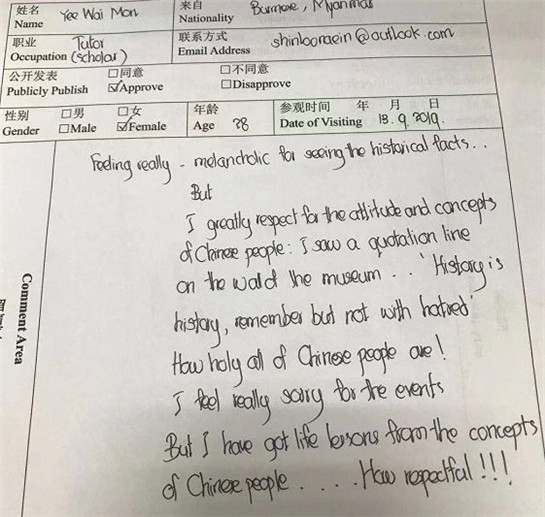 姓名
Name Yee Wai Mon
来自
Nationality Burmese, Myanmar
职业
Occupation Tutor (scholar)
联系方式
Email Address shinloonaein@outlook.com
公开发表
Publicly Publish
□同意
☑Approve
□不同意
□Disapprove
性别
Gender
□男
□Male
□女
☑Female
年龄
Age 28
参观时间 年 月 日
Date of Visiting 18.9.2019.
Comment Area
Feeling really - melancholic for seeing the historical facts..
But
I greatly respect for the attitude and concepts
of Chinese people: I saw a quotation line
on the wall of the museum .. 'History is
history, remember but not with hatred'
How holy all of Chinese people are!
I feel really sorry for the events
But I have got life lessons from the concepts
of Chinese people . . . . How respectful!!!